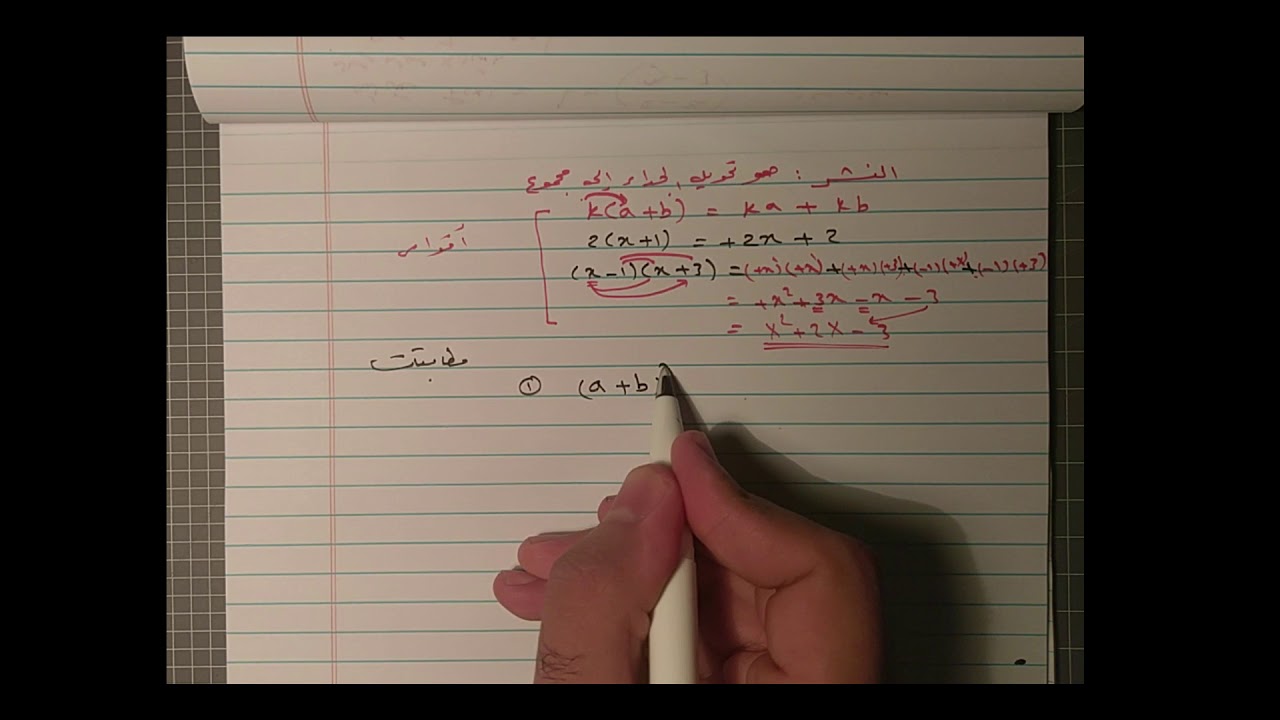 النشر : هو تحويل الجداء إلى مجموع
k(a+b) = ka + kb
أقواس
2(x+1) = +2x + 2
(x-1)(x+3) = (+x)(+x)+(+x)(+3)+(-1)(+x)+(-1)(+3)
= +x²+3x-x-3
= x²+2x-3
مطابقات
① (a+b)